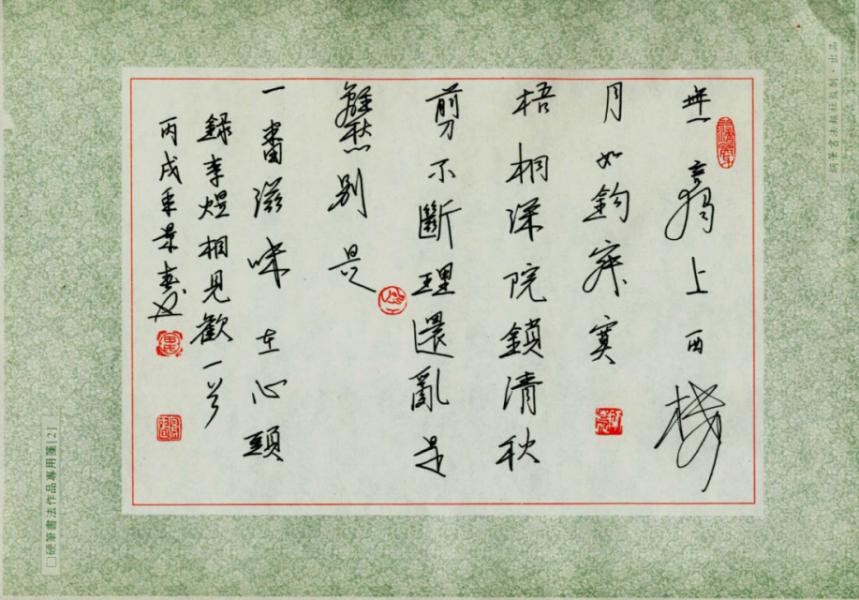 無言獨上西樓
月如鈎寂寞
梧桐深院鎖清秋
剪不斷理還亂是
離愁別是
一番滋味在心頭
錄李煜相見歡一首
丙戌年景
硬筆書法作品專用箋[2]